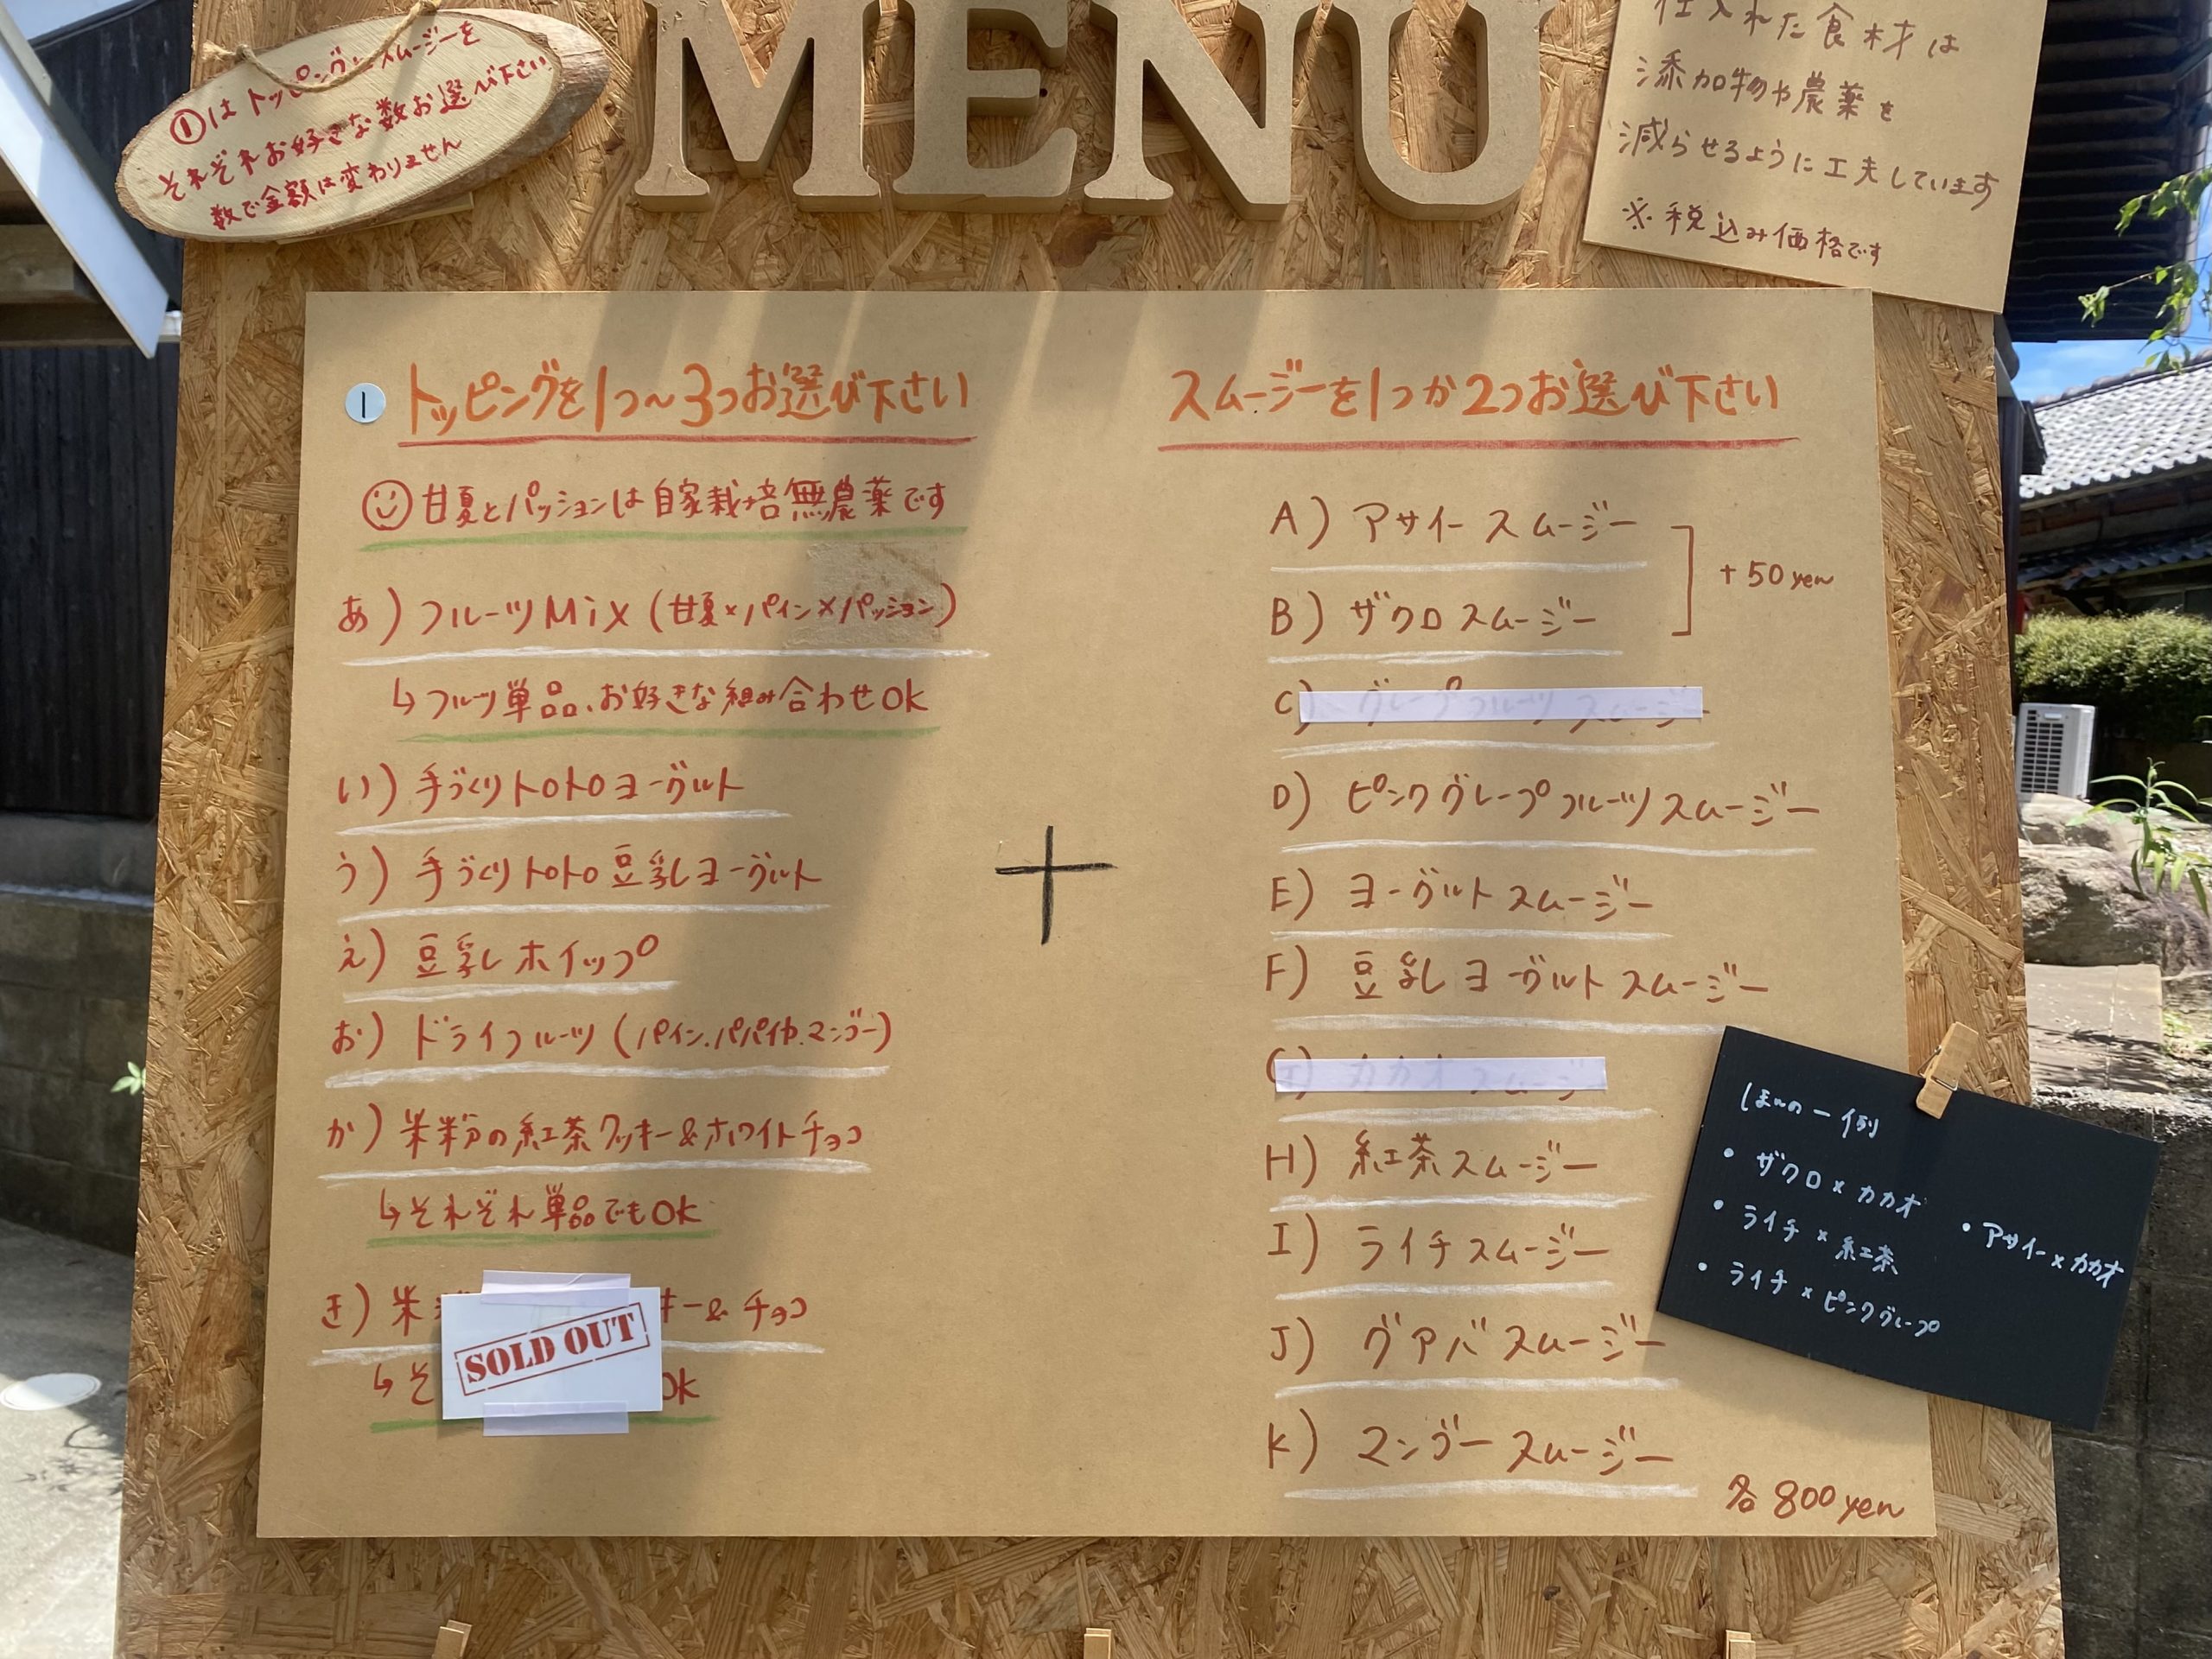 MENU
①はトッピングとスムージーを
それぞれお好きな数お選び下さい
数で金額は変わりません
仕入れた食材は
添加物や農薬を
減らせるように工夫しています
※税込み価格です
1 トッピングを1つ〜3つお選び下さい
甘夏とパッションは自家栽培無農薬です
あ) フルーツMix (甘夏×パイン×パッション)
↳フルーツ単品、お好きな組み合わせOK
い) 手づくりトロトロヨーグルト
う) 手づくりトロトロ豆乳ヨーグルト
え) 豆乳ホイップ
お) ドライフルーツ (パイン、パパイヤ、マンゴー)
か) 米粉の紅茶クッキー&ホワイトチョコ
↳それぞれ単品でもOK
き) 米 キー&チョコ
SOLD OUT
↳そ OK
+
スムージーを1つか2つお選び下さい
A) アサイースムージー
B) ザクロスムージー
+50yen
C) グレープフルーツスムージー
D) ピンクグレープフルーツスムージー
E) ヨーグルトスムージー
F) 豆乳ヨーグルトスムージー
G) カカオスムージー
H) 紅茶スムージー
I) ライチスムージー
J) グアバスムージー
K) マンゴースムージー
各800yen
ほんの一例
・ザクロ×カカオ
・ライチ×紅茶
・アサイー×カカオ
・ライチ×ピンクグレープ